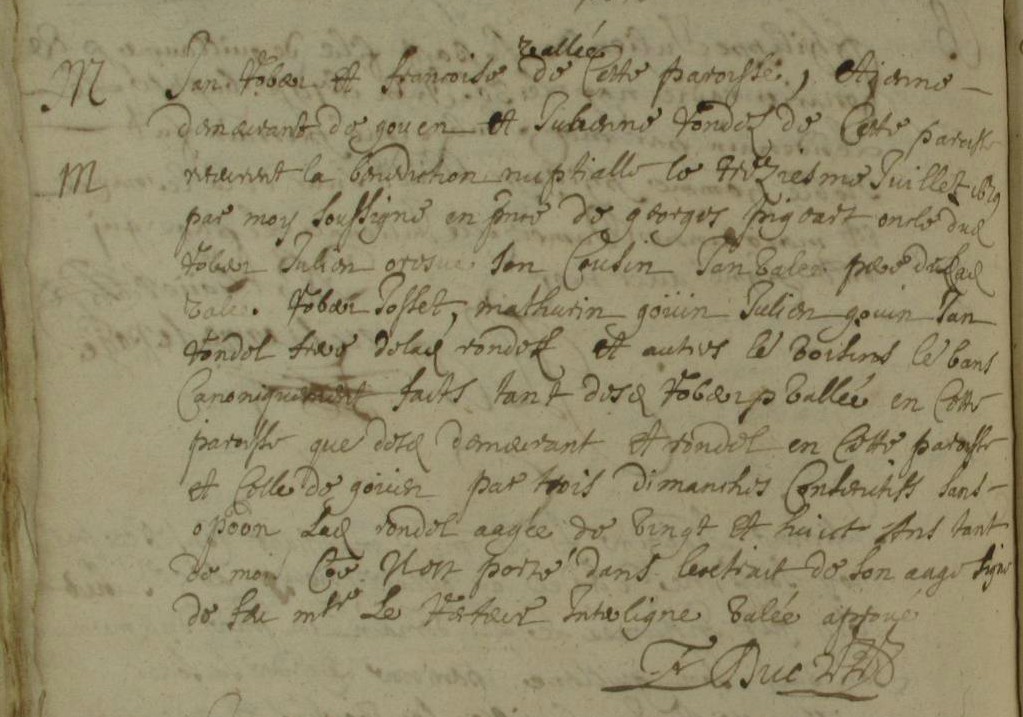 vallée
M Jan Robert et francoise de Cette paroisse, Et janne
demeurant de goven et Julienne Rondel de Cette paroisse
M receurent la benediction nuptialle le treziesme Juillet 1679
par moy soussigné en pnce de georges pigeart oncle dud
Robert Julien son Cousin Jan Valee pere de lad
Valee. Robert Josset, mathurin gouin Julien gouin Jan
Rondel frere de lad rondel et autres le bans
Canoniquement faits tant desd Robert Vallée en Cette
paroisse que desd demeurant et rondel en Cette paroisse
et Celle de goven par trois dimanches Consecutifs sans
opoon Lad rondel aagée de vingt et huict Ans tant
de moy Coe Il est porté dans lextrait de son aage signé
de feu mre Le Interligne valée aprouvé
Duc